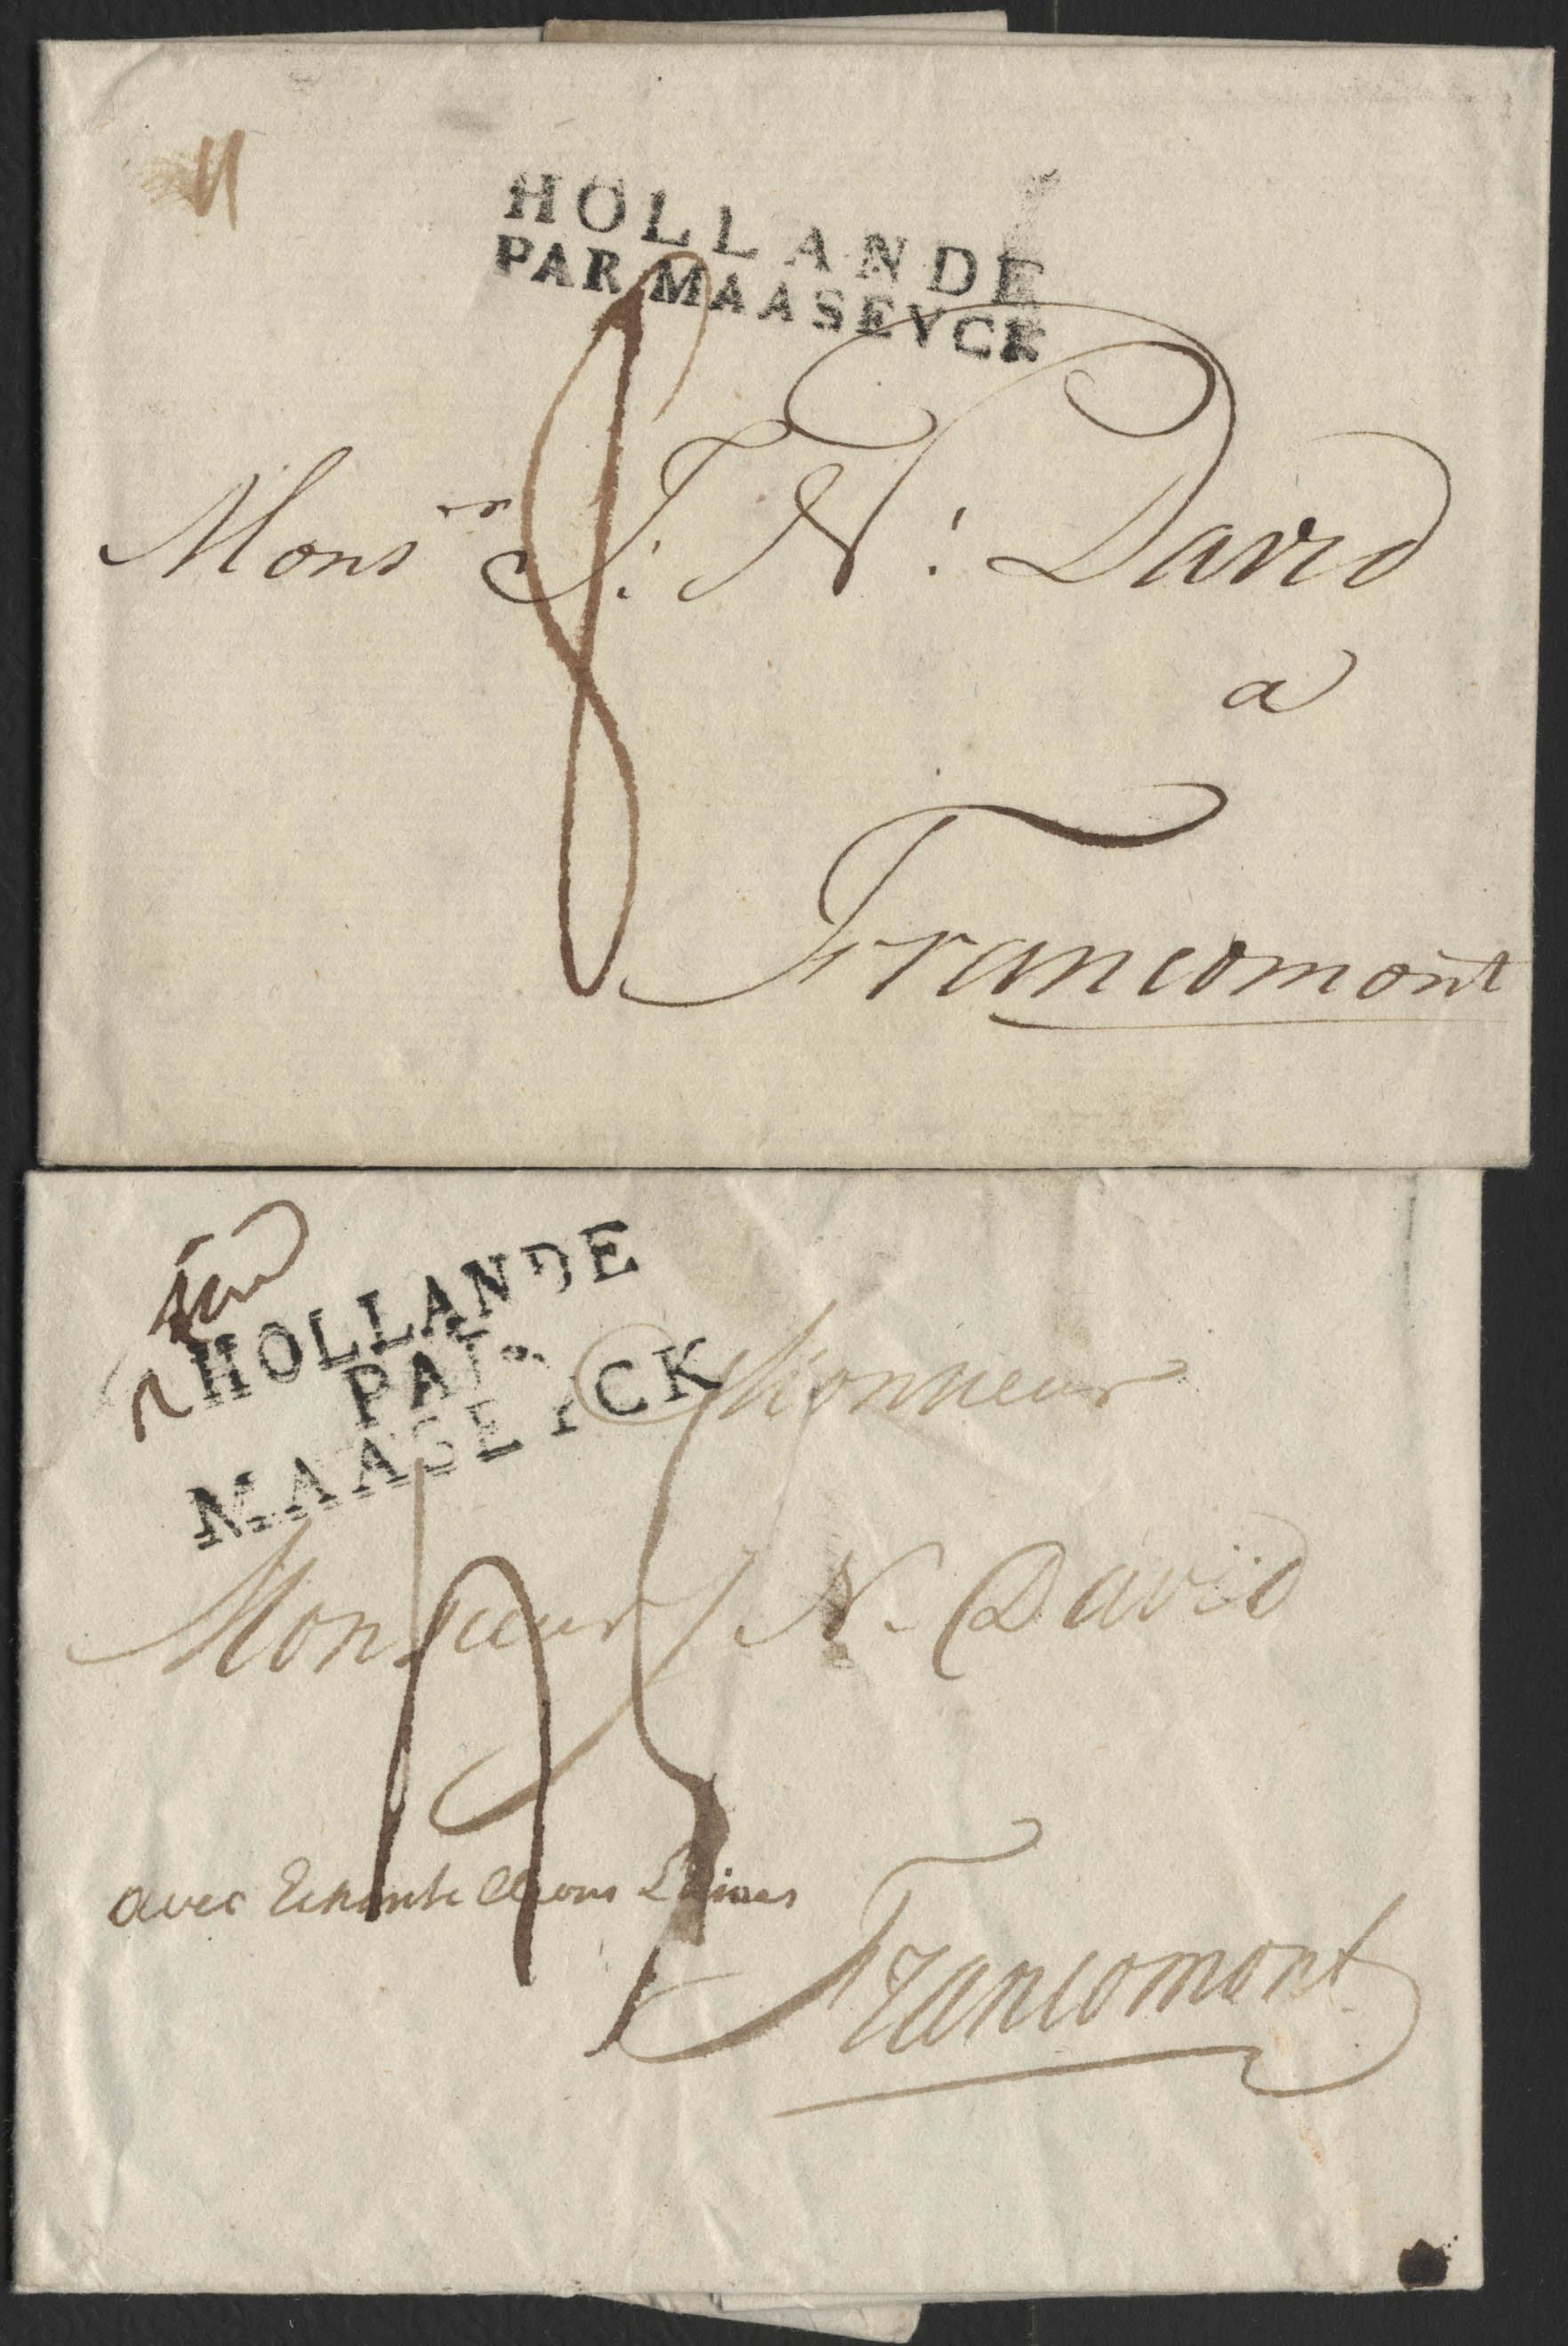 HOLLANDE
PAR MAASEYCK
8
Monsr J: N: David
a
Francomont
HOLLANDE
PAR
MAASEYCK
Monsieur
Monsieur J N. David
avec Echantillons Laines
Francomont